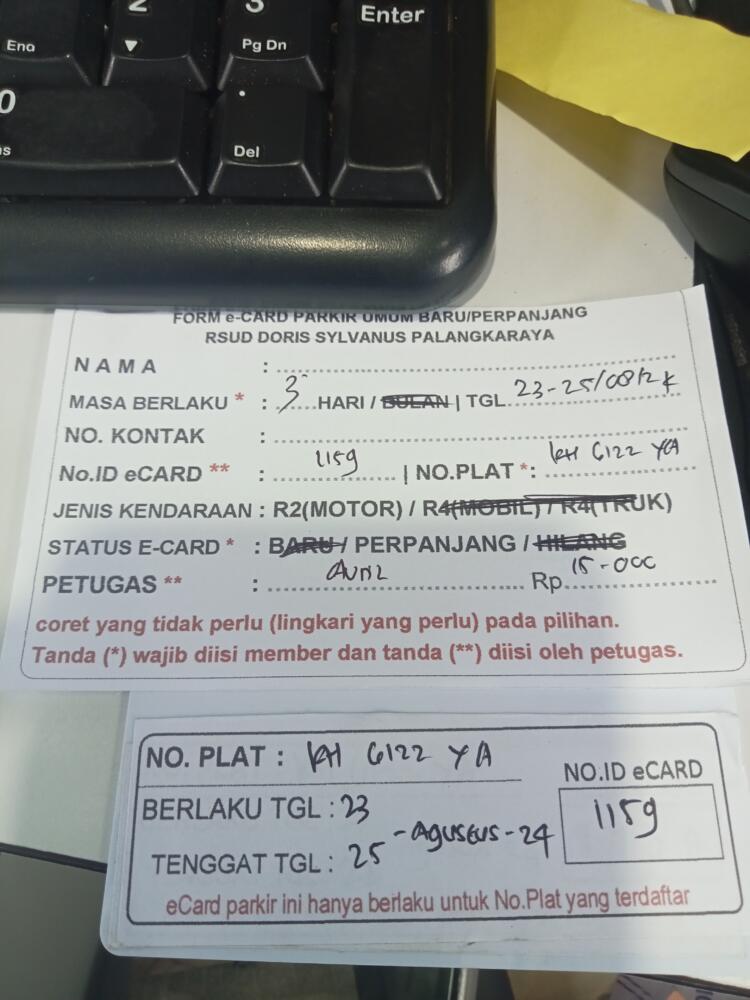 2
3
Enter
End
▼
Pg Dn
0
.
Ins
Del
FORM e-CARD PARKIR UMUM BARU/PERPANJANG
RSUD DORIS SYLVANUS PALANGKARAYA
NAMA :
MASA BERLAKU * : 3 HARI / BULAN | TGL. 23-25/08/24
NO. KONTAK :
No.ID eCARD ** : 1159 | NO.PLAT *: KH 6122 YA
JENIS KENDARAAN : R2(MOTOR) / R4(MOBIL) / R4(TRUK)
STATUS E-CARD * : BARU / PERPANJANG / HILANG
PETUGAS ** : Rp. 15.000
coret yang tidak perlu (lingkari yang perlu) pada pilihan.
Tanda (*) wajib diisi member dan tanda (**) diisi oleh petugas.
NO. PLAT : KH 6122 YA
NO.ID eCARD
BERLAKU TGL : 23
1159
- AGUSTUS - 24
TENGGAT TGL : 25
eCard parkir ini hanya berlaku untuk No.Plat yang terdaftar